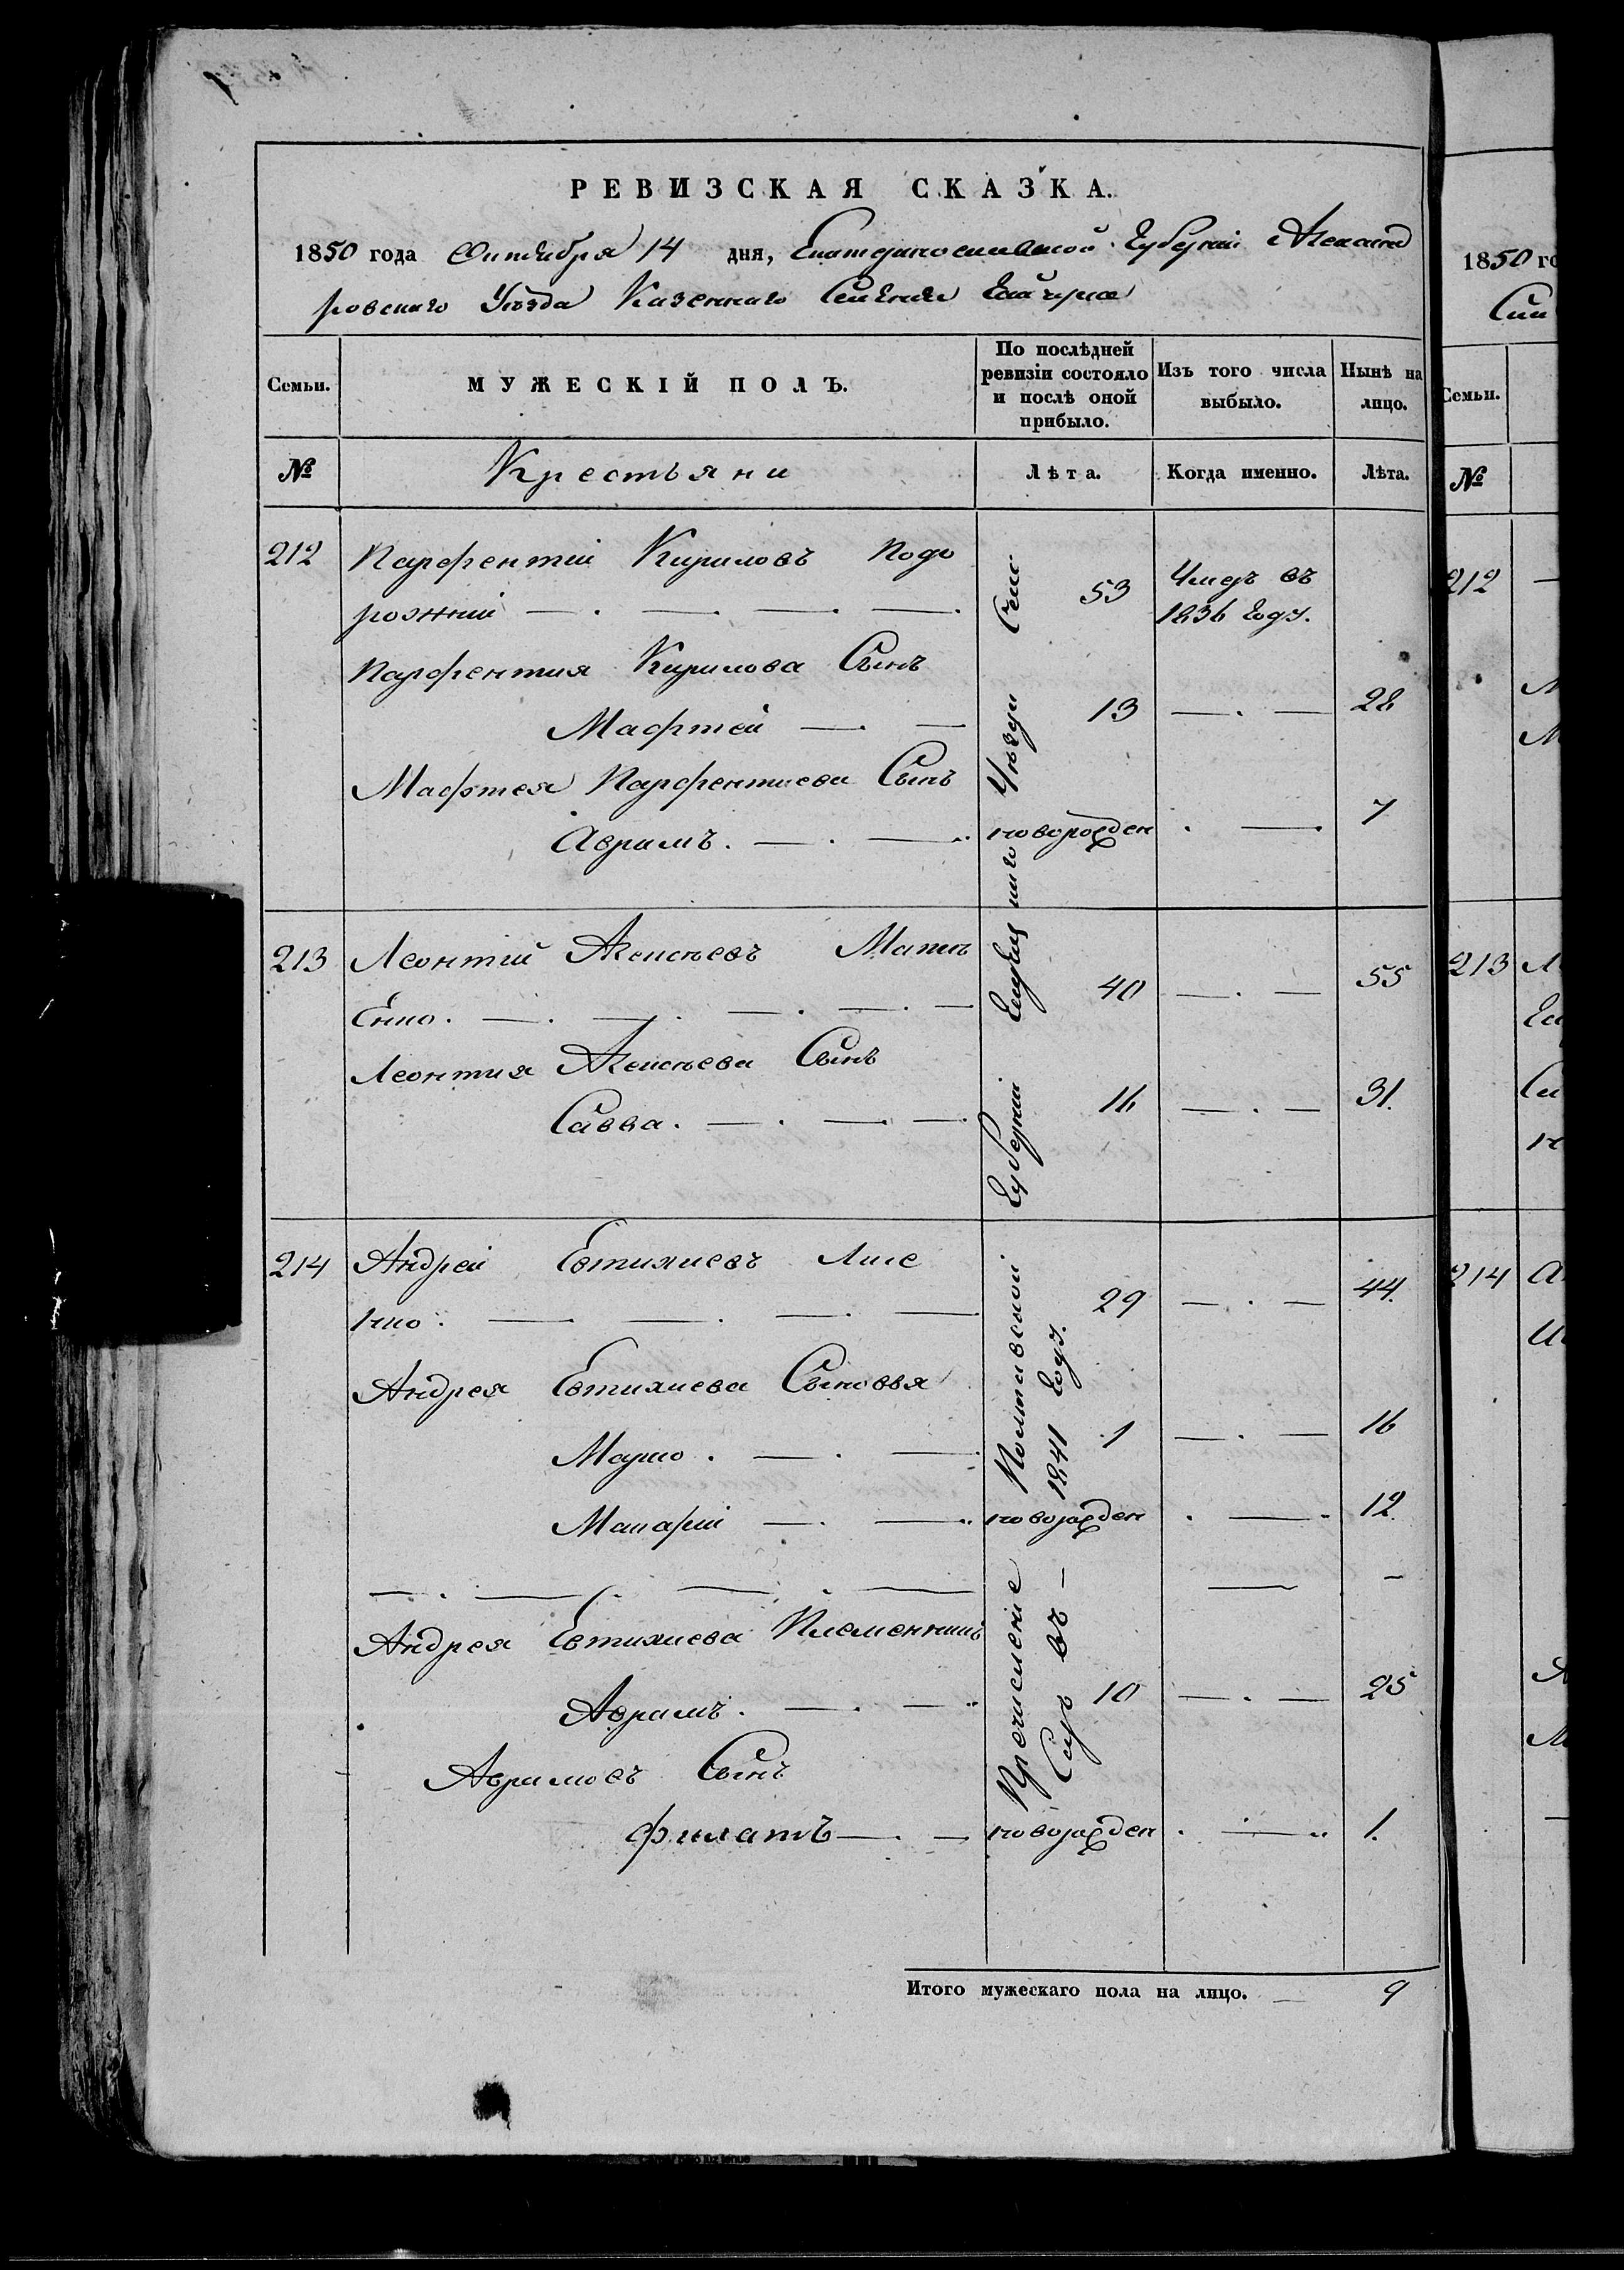 РЕВИЗСКАЯ СКАЗКА.
1850 года Октября 14 дня, Екатеринославской Губерніи Александ
ровскаго Уѣзда Казеннаго Селенія Гайчула
Семьи.
МУЖЕСКІЙ ПОЛЪ.
По послѣдней
ревизіи состояло
и послѣ оной
прибыло.
Изъ того числа
выбыло.
Нынѣ на
лицо.
№
Крестьяни
Лѣта.
Когда именно.
Лѣта.
212 Парфентій Кириловъ Подо
рожній — . — . — . — . 53 Умеръ въ
1836 году.
Парфентия Кирилова Сынъ
Мафтей — . — 13 — . — 28
Мафтея Парфентиева Сынъ
Аврамъ . — . — . новорожден . — . 7
213 Леонтій Алексѣевъ Матв
Енко . — . — . — . — . — 40 — . — 55
Леонтия Алексѣева Сынъ
Савва . — . — . — . 16 — . — 31.
214 Андрей Евтихиевъ Лисе
нко . — — . — . — 29 — . — 44.
Андрея Евтихиева Сыновья
Марко . — . — . 1 — . — 16
Макарій — . — . новорожден . — . 12.
— . — . — . — — -
Андрея Евтихиева Племенникъ
Аврамъ . — . — . 10 — . — 25
Аврамовъ Сынъ
Филатъ — . — новорожден . — . 1.
Пречисление Полтавской Губерніи Уѣзда
въ — 1841 году.
Итого мужескаго пола на лицо. — 9
1850 го
Семьи.
№
212
213
214